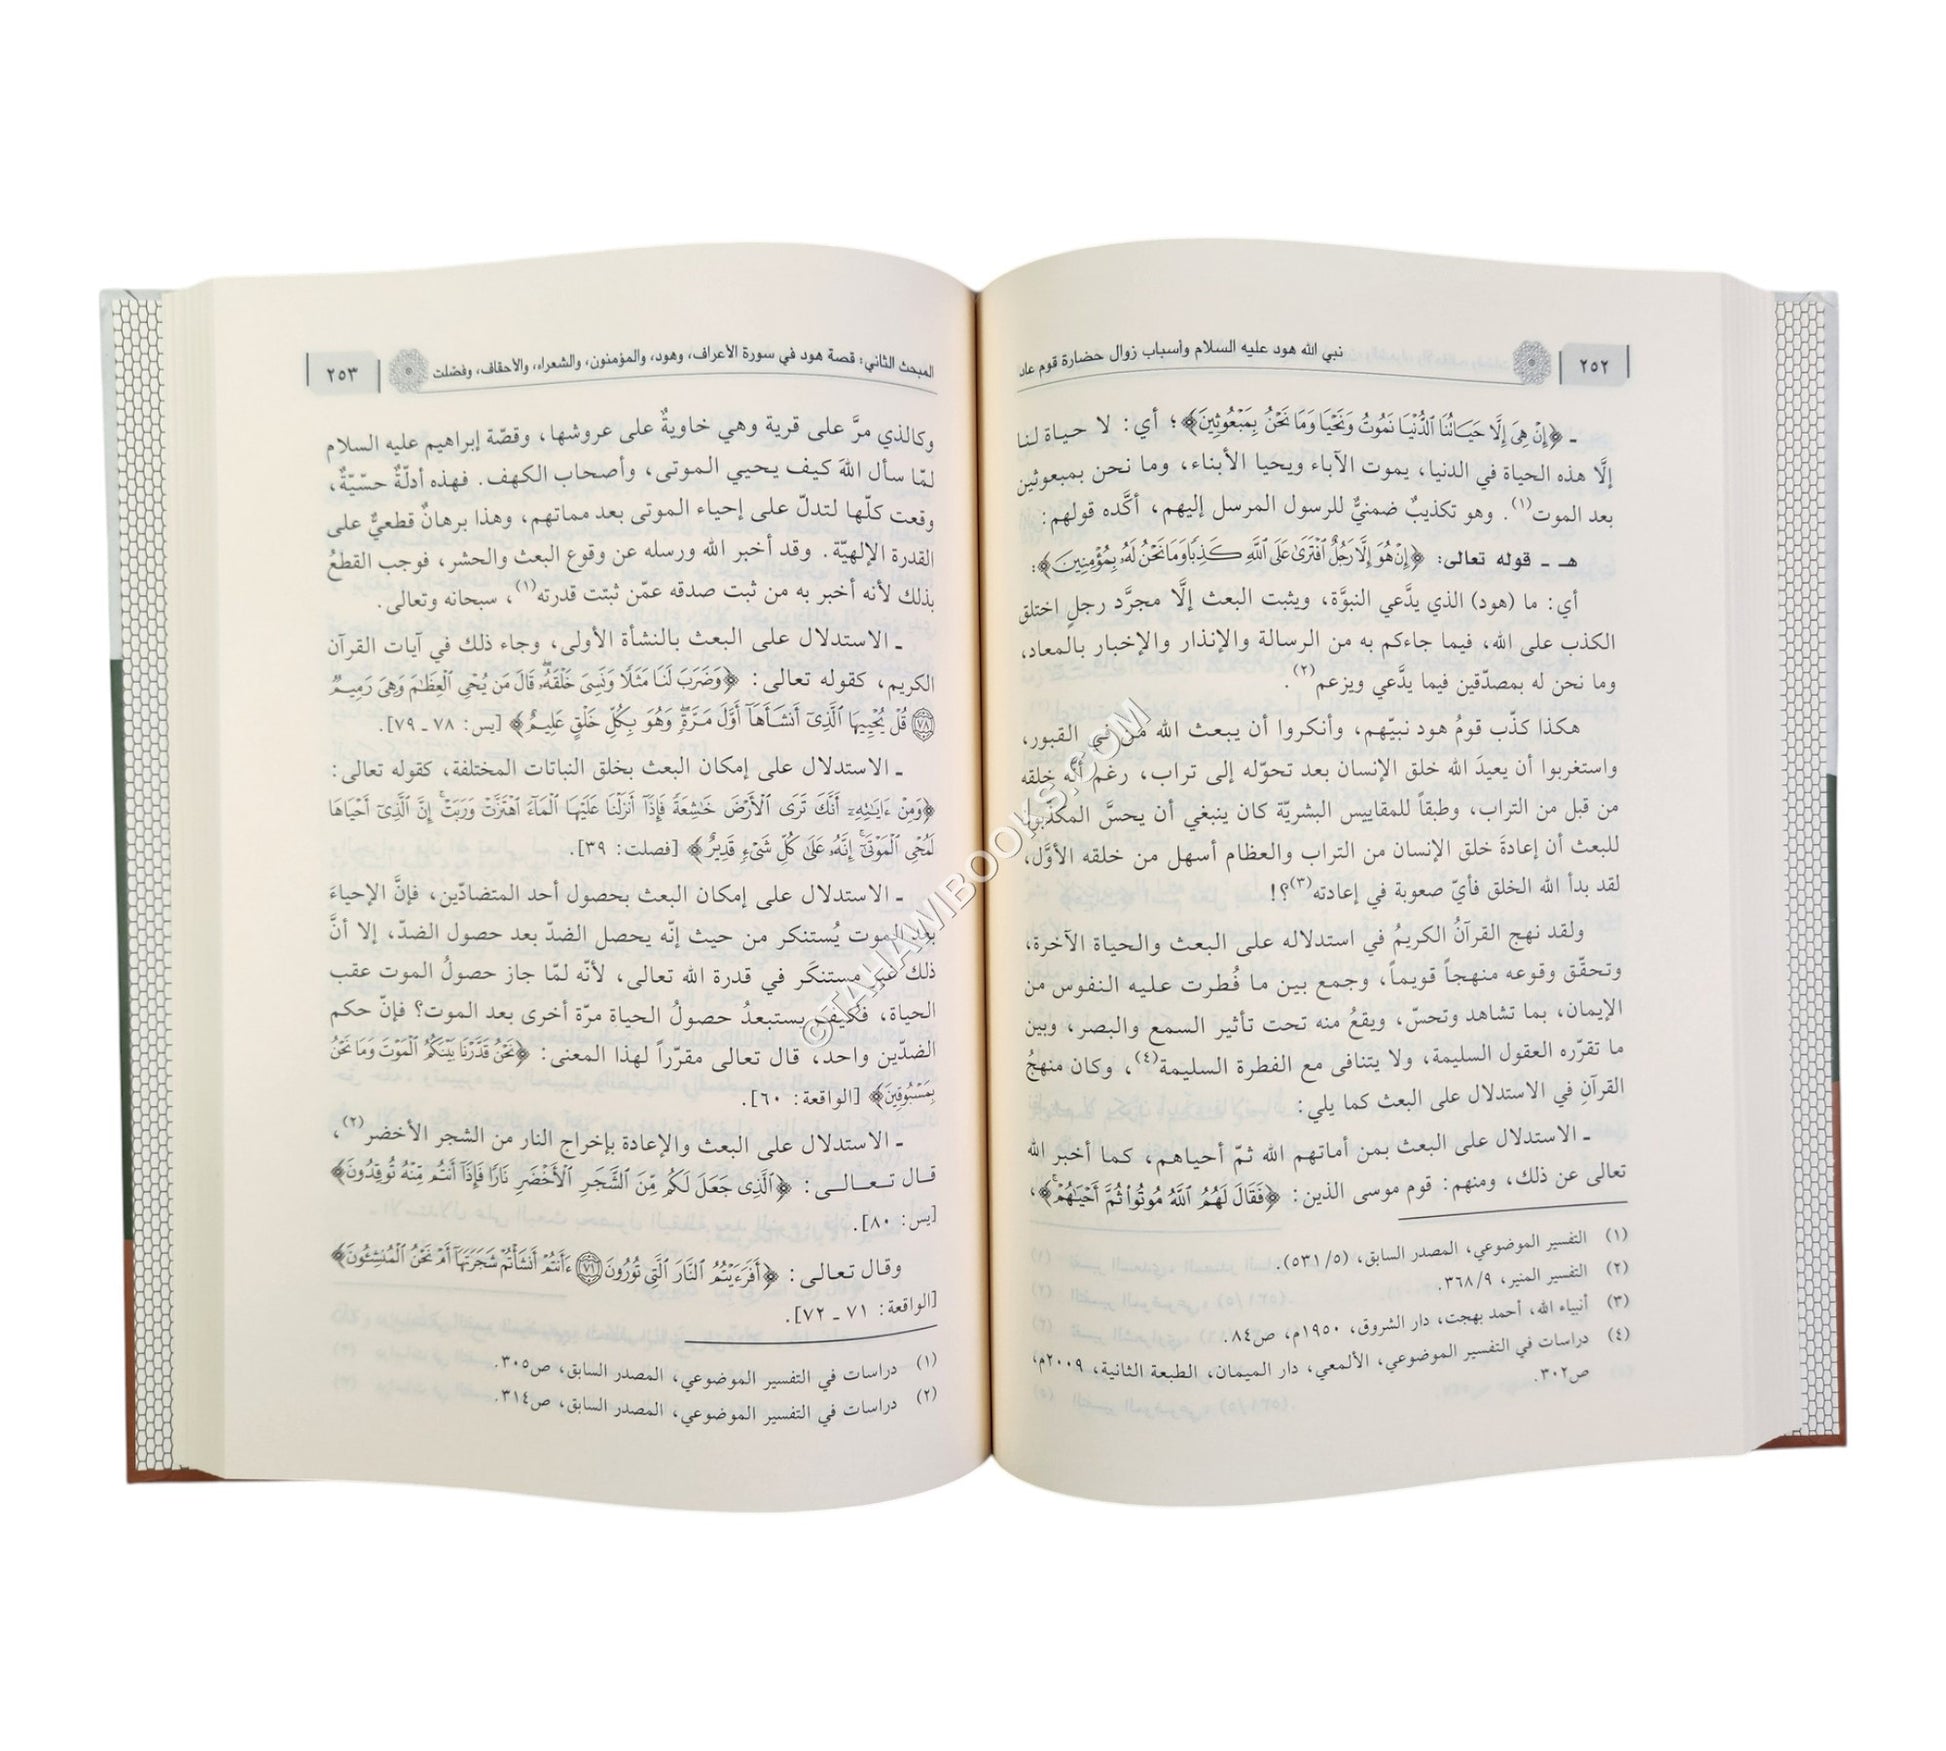 ٢٥٢
نبي الله هود عليه السلام وأسباب زوال حضارة قوم عاد
ـ ﴿إِنْ هِيَ إِلَّا حَيَاتُنَا ٱلدُّنْيَا نَمُوتُ وَنَحْيَا وَمَا نَحْنُ بِمَبْعُوثِينَ﴾؛ أي: لا حياة لنا
إلَّا هذه الحياة في الدنيا، يموت الآباء ويحيا الأبناء، وما نحن بمبعوثين
بعد الموت(١). وهو تكذيبٌ ضمنيٌّ للرسول المرسل إليهم، أكَّده قولهم:
هـ ـ قوله تعالى: ﴿إِنْ هُوَ إِلَّا رَجُلٌ ٱفْتَرَىٰ عَلَى ٱللَّهِ كَذِبًا وَمَا نَحْنُ لَهُۥ بِمُؤْمِنِينَ﴾:
أي: ما (هود) الذي يدَّعي النبوَّة، ويثبت البعث إلَّا مجرَّد رجلٍ اختلق
الكذب على الله، فيما جاءكم به من الرسالة والإنذار والإخبار بالمعاد،
وما نحن له بمصدّقين فيما يدَّعي ويزعم(٢).
هكذا كذّب قومُ هود نبيّهم، وأنكروا أن يبعث الله من في القبور،
واستغربوا أن يعيدَ الله خلق الإنسان بعد تحوّله إلى تراب، رغم أنّه خلقه
من قبل من التراب، وطبقاً للمقاييس البشريّة كان ينبغي أن يحسَّ المكذّبون
للبعث أن إعادةَ خلق الإنسان من التراب والعظام أسهل من خلقه الأوَّل،
لقد بدأ الله الخلق فأيّ صعوبة في إعادته(٣)؟!
ولقد نهج القرآنُ الكريمُ في استدلاله على البعث والحياة الآخرة،
وتحقّق وقوعه منهجاً قويماً، وجمع بين ما فُطرت عليه النفوس من
الإيمان، بما تشاهد وتحسّ، ويقعُ منه تحت تأثير السمع والبصر، وبين
ما تقرّره العقول السليمة، ولا يتنافى مع الفطرة السليمة(٤)، وكان منهجُ
القرآنِ في الاستدلال على البعث كما يلي:
ـ الاستدلال على البعث بمن أماتهم الله ثمّ أحياهم، كما أخبر الله
تعالى عن ذلك، ومنهم: قوم موسى الذين: ﴿فَقَالَ لَهُمُ ٱللَّهُ مُوتُوا۟ ثُمَّ أَحْيَـٰهُمْ﴾،
(١) التفسير الموضوعي، المصدر السابق، (٥/٥٣١).
(٢) التفسير المنير، ٣٦٨/٩.
(٣) أنبياء الله، أحمد بهجت، دار الشروق، ١٩٥٠م، ص٨٤.
(٤) دراسات في التفسير الموضوعي، الألمعي، دار الميمان، الطبعة الثانية، ٢٠٠٩م،
ص٣٠٢.
المبحث الثاني: قصة هود في سورة الأعراف، وهود، والمؤمنون، والشعراء، والأحقاف، وفصّلت
٢٥٣
وكالذي مرَّ على قرية وهي خاويةٌ على عروشها، وقصّة إبراهيم عليه السلام
لمّا سأل اللهَ كيف يحيي الموتى، وأصحاب الكهف. فهذه أدلّةٌ حسّيّةٌ،
وقعت كلّها لتدلّ على إحياء الموتى بعد مماتهم، وهذا برهانٌ قطعيٌّ على
القدرة الإلهيّة. وقد أخبر الله ورسله عن وقوع البعث والحشر، فوجب القطعُ
بذلك لأنه أخبر به من ثبت صدقه عمّن ثبتت قدرته(١)، سبحانه وتعالى.
ـ الاستدلال على البعث بالنشأة الأولى، وجاء ذلك في آيات القرآن
الكريم، كقوله تعالى: ﴿وَضَرَبَ لَنَا مَثَلًا وَنَسِيَ خَلْقَهُۥ قَالَ مَن يُحْيِ ٱلْعِظَـٰمَ وَهِيَ رَمِيمٌ
٧٨ قُلْ يُحْيِيهَا ٱلَّذِىٓ أَنشَأَهَآ أَوَّلَ مَرَّةٍ وَهُوَ بِكُلِّ خَلْقٍ عَلِيمٌ﴾ [يس: ٧٨ ـ ٧٩].
ـ الاستدلال على إمكان البعث بخلق النباتات المختلفة، كقوله تعالى:
﴿وَمِنْ ءَايَـٰتِهِۦٓ أَنَّكَ تَرَى ٱلْأَرْضَ خَـٰشِعَةً فَإِذَآ أَنزَلْنَا عَلَيْهَا ٱلْمَآءَ ٱهْتَزَّتْ وَرَبَتْ إِنَّ ٱلَّذِىٓ أَحْيَاهَا
لَمُحْيِ ٱلْمَوْتَىٰٓ إِنَّهُۥ عَلَىٰ كُلِّ شَىْءٍ قَدِيرٌ﴾ [فصلت: ٣٩].
ـ الاستدلال على إمكان البعث بحصول أحد المتضادّين، فإنَّ الإحياءَ
بعد الموت يُستنكر من حيث إنّه يحصل الضدّ بعد حصول الضدّ، إلا أنَّ
ذلك غير مستنكَر في قدرة الله تعالى، لأنّه لمّا جاز حصولُ الموت عقب
الحياة، فكيف يستبعدُ حصولُ الحياة مرّة أخرى بعد الموت؟ فإنّ حكم
الضدّين واحد، قال تعالى مقرّراً لهذا المعنى: ﴿نَحْنُ قَدَّرْنَا بَيْنَكُمُ ٱلْمَوْتَ وَمَا نَحْنُ
بِمَسْبُوقِينَ﴾ [الواقعة: ٦٠].
ـ الاستدلال على البعث والإعادة بإخراج النار من الشجر الأخضر(٢)،
قال تعالى: ﴿ٱلَّذِى جَعَلَ لَكُم مِّنَ ٱلشَّجَرِ ٱلْأَخْضَرِ نَارًا فَإِذَآ أَنتُم مِّنْهُ تُوقِدُونَ﴾
[يس: ٨٠].
وقال تعالى: ﴿أَفَرَءَيْتُمُ ٱلنَّارَ ٱلَّتِى تُورُونَ ٧١ ءَأَنتُمْ أَنشَأْتُمْ شَجَرَتَهَآ أَمْ نَحْنُ ٱلْمُنشِـُٔونَ﴾
[الواقعة: ٧١ ـ ٧٢].
(١) دراسات في التفسير الموضوعي، المصدر السابق، ص٣٠٥.
(٢) دراسات في التفسير الموضوعي، المصدر السابق، ص٣١٤.
©TAHAWIBOOKS.COM